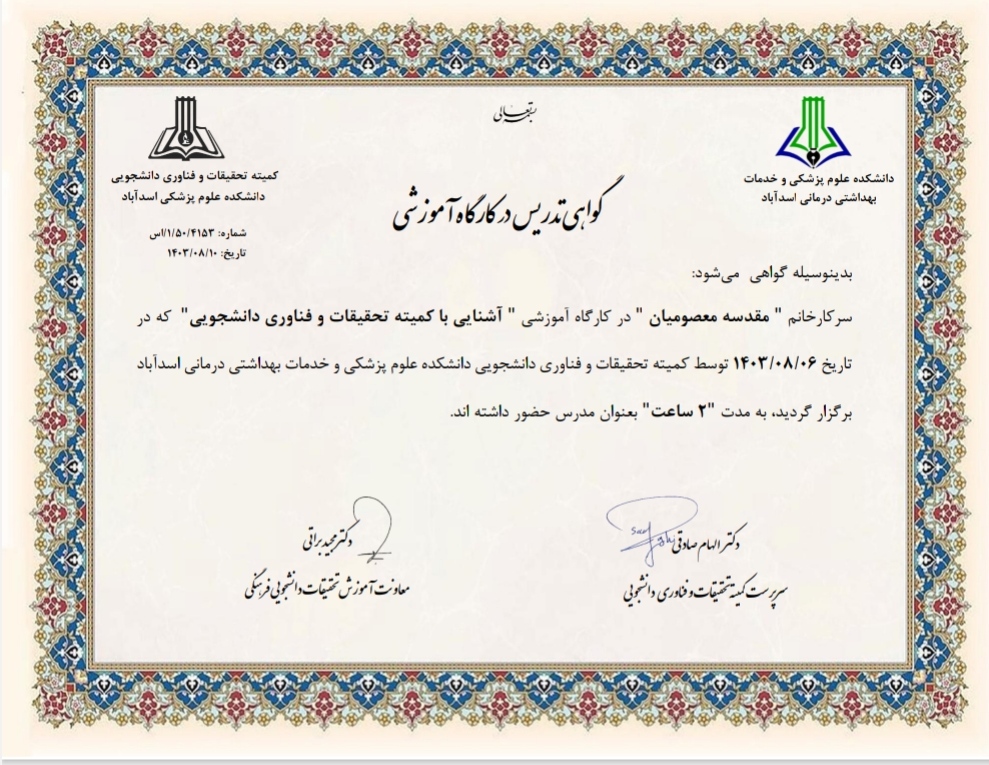 بسمه تعالی
دانشکده علوم پزشکی و خدمات
بهداشتی درمانی اسدآباد
کمیته تحقیقات و فناوری دانشجویی
دانشکده علوم پزشکی اسدآباد
شماره: ۱/۵۰/۴۱۵۳/اس
تاریخ: ۱۴۰۳/۰۸/۱۰
گواهی تدریس در کارگاه آموزشی
بدینوسیله گواهی می‌شود:
سرکارخانم " مقدسه معصومیان " در کارگاه آموزشی " آشنایی با کمیته تحقیقات و فناوری دانشجویی" که در
تاریخ ۱۴۰۳/۰۸/۰۶ توسط کمیته تحقیقات و فناوری دانشجویی دانشکده علوم پزشکی و خدمات بهداشتی درمانی اسدآباد
برگزار گردید، به مدت "۲ ساعت" بعنوان مدرس حضور داشته اند.
دکتر الهام صادقی
سرپرست کمیته تحقیقات و فناوری دانشجویی
دکتر مجید براتی
معاونت آموزش تحقیقات دانشجویی فرهنگی